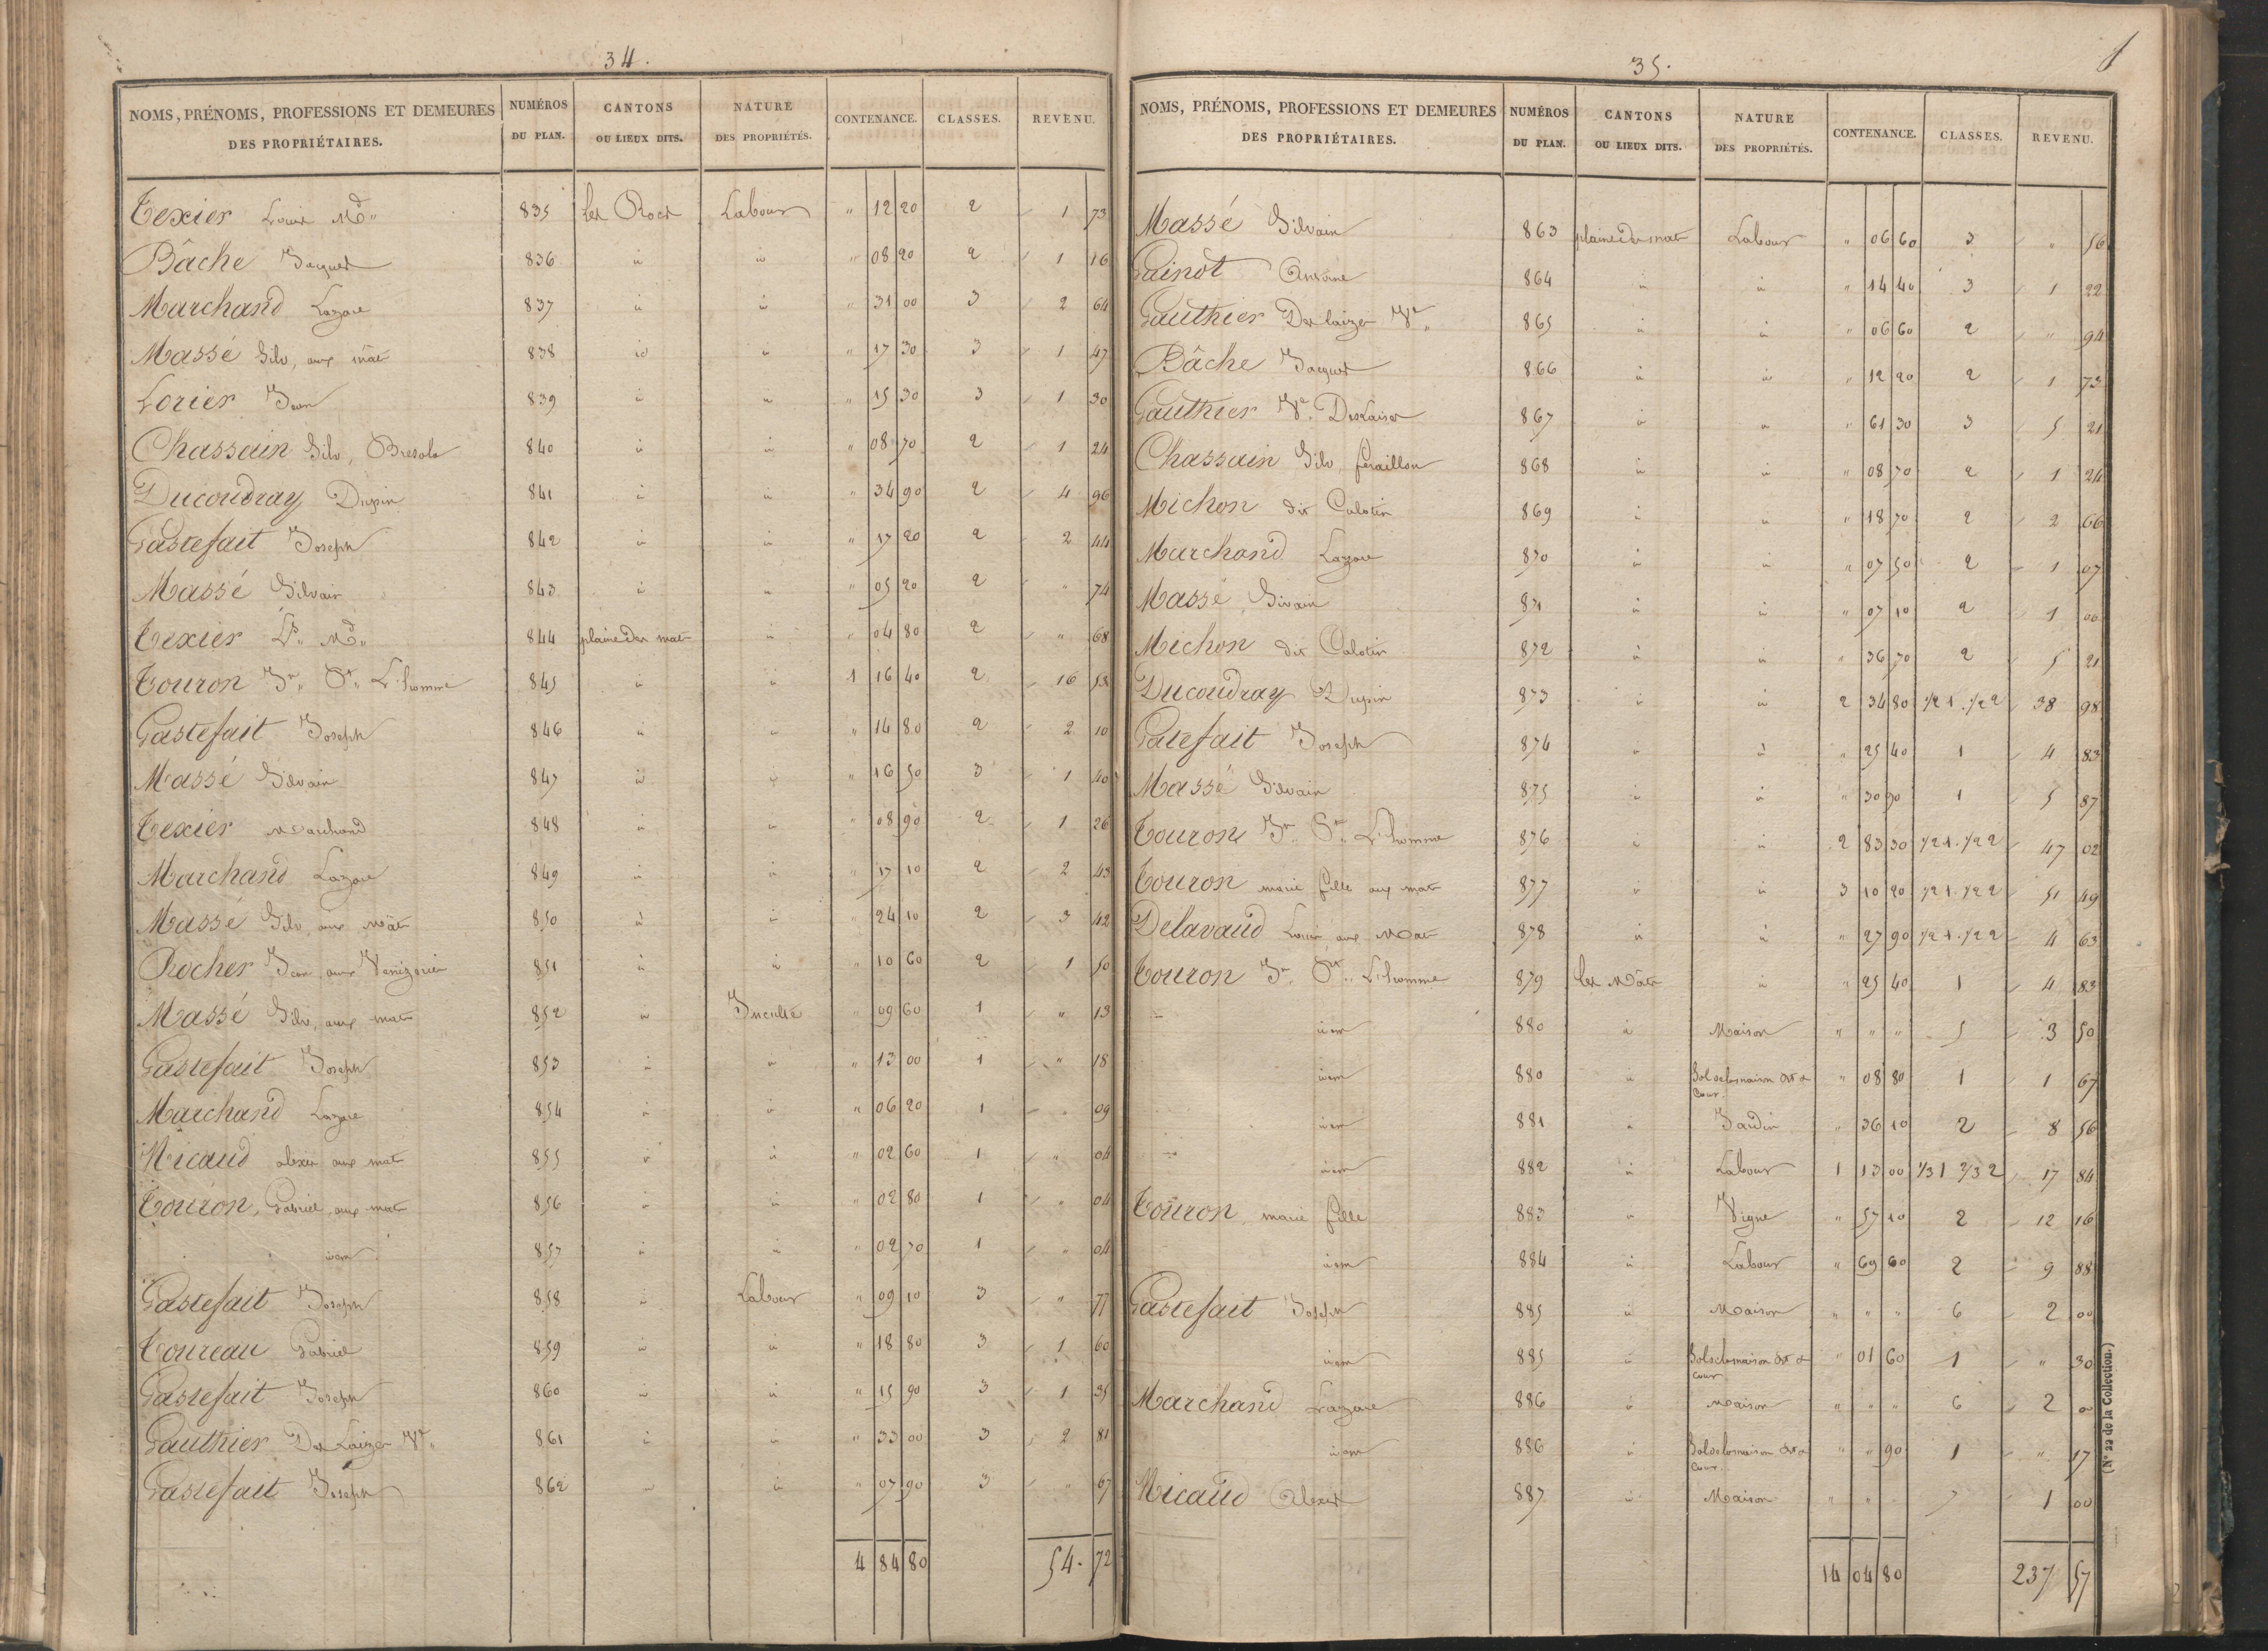 34.
NOMS, PRÉNOMS, PROFESSIONS ET DEMEURES DES PROPRIÉTAIRES. NUMÉROS DU PLAN. CANTONS OU LIEUX DITS. NATURE DES PROPRIÉTÉS. CONTENANCE. CLASSES. REVENU.
Texier Louis Md. 835 les Rocs Labour " 12 20 2 1 73
Bâche Jacques 836 id id " 08 20 2 1 16
Marchand Lazare 837 id id " 31 00 3 2 64
Massé Silv, aux mât 838 id id " 17 30 3 1 47
Lorier Jean 839 id id " 15 30 3 1 30
Chassain Silv, Bresolo 840 id id " 08 70 2 1 24
Ducoudray Dupin 841 id id " 34 90 2 4 96
Gastefait Joseph 842 id id " 17 20 2 2 44
Massé Silvain 843 id id " 05 20 2 " 74
Texier Ls. Md. 844 plaine des mats id " 04 80 2 " 68
Touron Jn. St. L'homme 845 id id 1 16 40 2 16 53
Gastefait Joseph 846 id id " 14 80 2 2 10
Massé Silvain 847 id id " 16 50 3 1 40
Texier Marchand 848 id id " 08 90 2 1 26
Marchand Lazare 849 id id " 17 10 2 2 43
Massé Silv, aux mât 850 id id " 24 10 2 3 42
Rocher Jean, aux 851 id id " 10 60 2 1 50
Massé Silv, aux mats 852 id Inculte " 09 60 1 " 13
Gastefait Joseph 853 id id " 13 00 1 " 18
Marchand Lazare 854 id id " 06 20 1 " 09
Micaud alexis aux mats 855 id id " 02 60 1 " 04
Touron, Gabriel, aux mats 856 id id " 02 80 1 " 04
idem 857 id id " 02 70 1 " 04
Gastefait Joseph 858 id Labour " 09 10 3 " 77
Toureau Gabriel 859 id id " 18 80 3 1 60
Gastefait Joseph 860 id id " 15 90 3 1 35
Gauthier Des Laizer Ve. 861 id id " 33 00 3 2 81
Gastefait Joseph 862 id id " 07 90 3 " 67
4 84 80 54. 72
35.
NOMS, PRÉNOMS, PROFESSIONS ET DEMEURES DES PROPRIÉTAIRES. NUMÉROS DU PLAN. CANTONS OU LIEUX DITS. NATURE DES PROPRIÉTÉS. CONTENANCE. CLASSES. REVENU.
Massé Silvain 863 plaine des mats Labour " 06 60 3 " 56
Guinot Antoine 864 id id " 14 40 3 1 22
Gauthier Des laizer Ve. 865 id id " 06 60 2 " 94
Bâche Jacques 866 id id " 12 20 2 1 73
Gauthier Ve. DesLaiser 867 id id " 61 30 3 5 21
Chassain Silv, feraillon 868 id id " 08 70 2 1 24
Michon dit Calotin 869 id id " 18 70 2 2 66
Marchand Lazare 870 id id " 07 50 2 1 07
Massé Sivain 871 id id " 07 10 2 1 00
Michon dit Calotin 872 id id " 36 70 2 5 21
Ducoudray Dupin 873 id id 2 34 80 1/2 1. 1/2 2 38 98
Gatefait Joseph 874 id id " 25 40 1 4 83
Massé Silvain 875 id id " 30 90 1 5 87
Touron Jn. St. L'homme 876 id id 2 83 30 1/2 1. 1/2 2 47 02
Touron marie fille aux mats 877 id id 3 10 20 1/2 1. 1/2 2 51 49
Delavaud Louis, aux Mats 878 id id " 27 90 1/2 1. 1/2 2 4 63
Touron Jn. St. L'homme 879 les Mâts id " 25 40 1 4 83
idem 880 id Maison " " " 5 3 50
idem 880 id Sol de la maison Bt & Cour. " 08 80 1 1 67
idem 881 id Jardin " 36 10 2 8 56
idem 882 id Labour 1 13 00 1/3 1 2/3 2 17 84
Touron marie fille 883 id Vigne " 57 10 2 12 16
idem 884 id Labour " 69 60 2 9 88
Gastefait Joseph 885 id Maison " " " 6 2 00
idem 885 id Sol de la maison Bt & cour " 01 60 1 " 30
Marchand Lazare 886 id Maison " " " 6 2 00
idem 886 id Sol de la maison Bt & Cour. " " 90 1 " 17
Micaud Alexis 887 id Maison " " 7 1 00
14 04 80 237 57
(N° 22 de la Collection.)